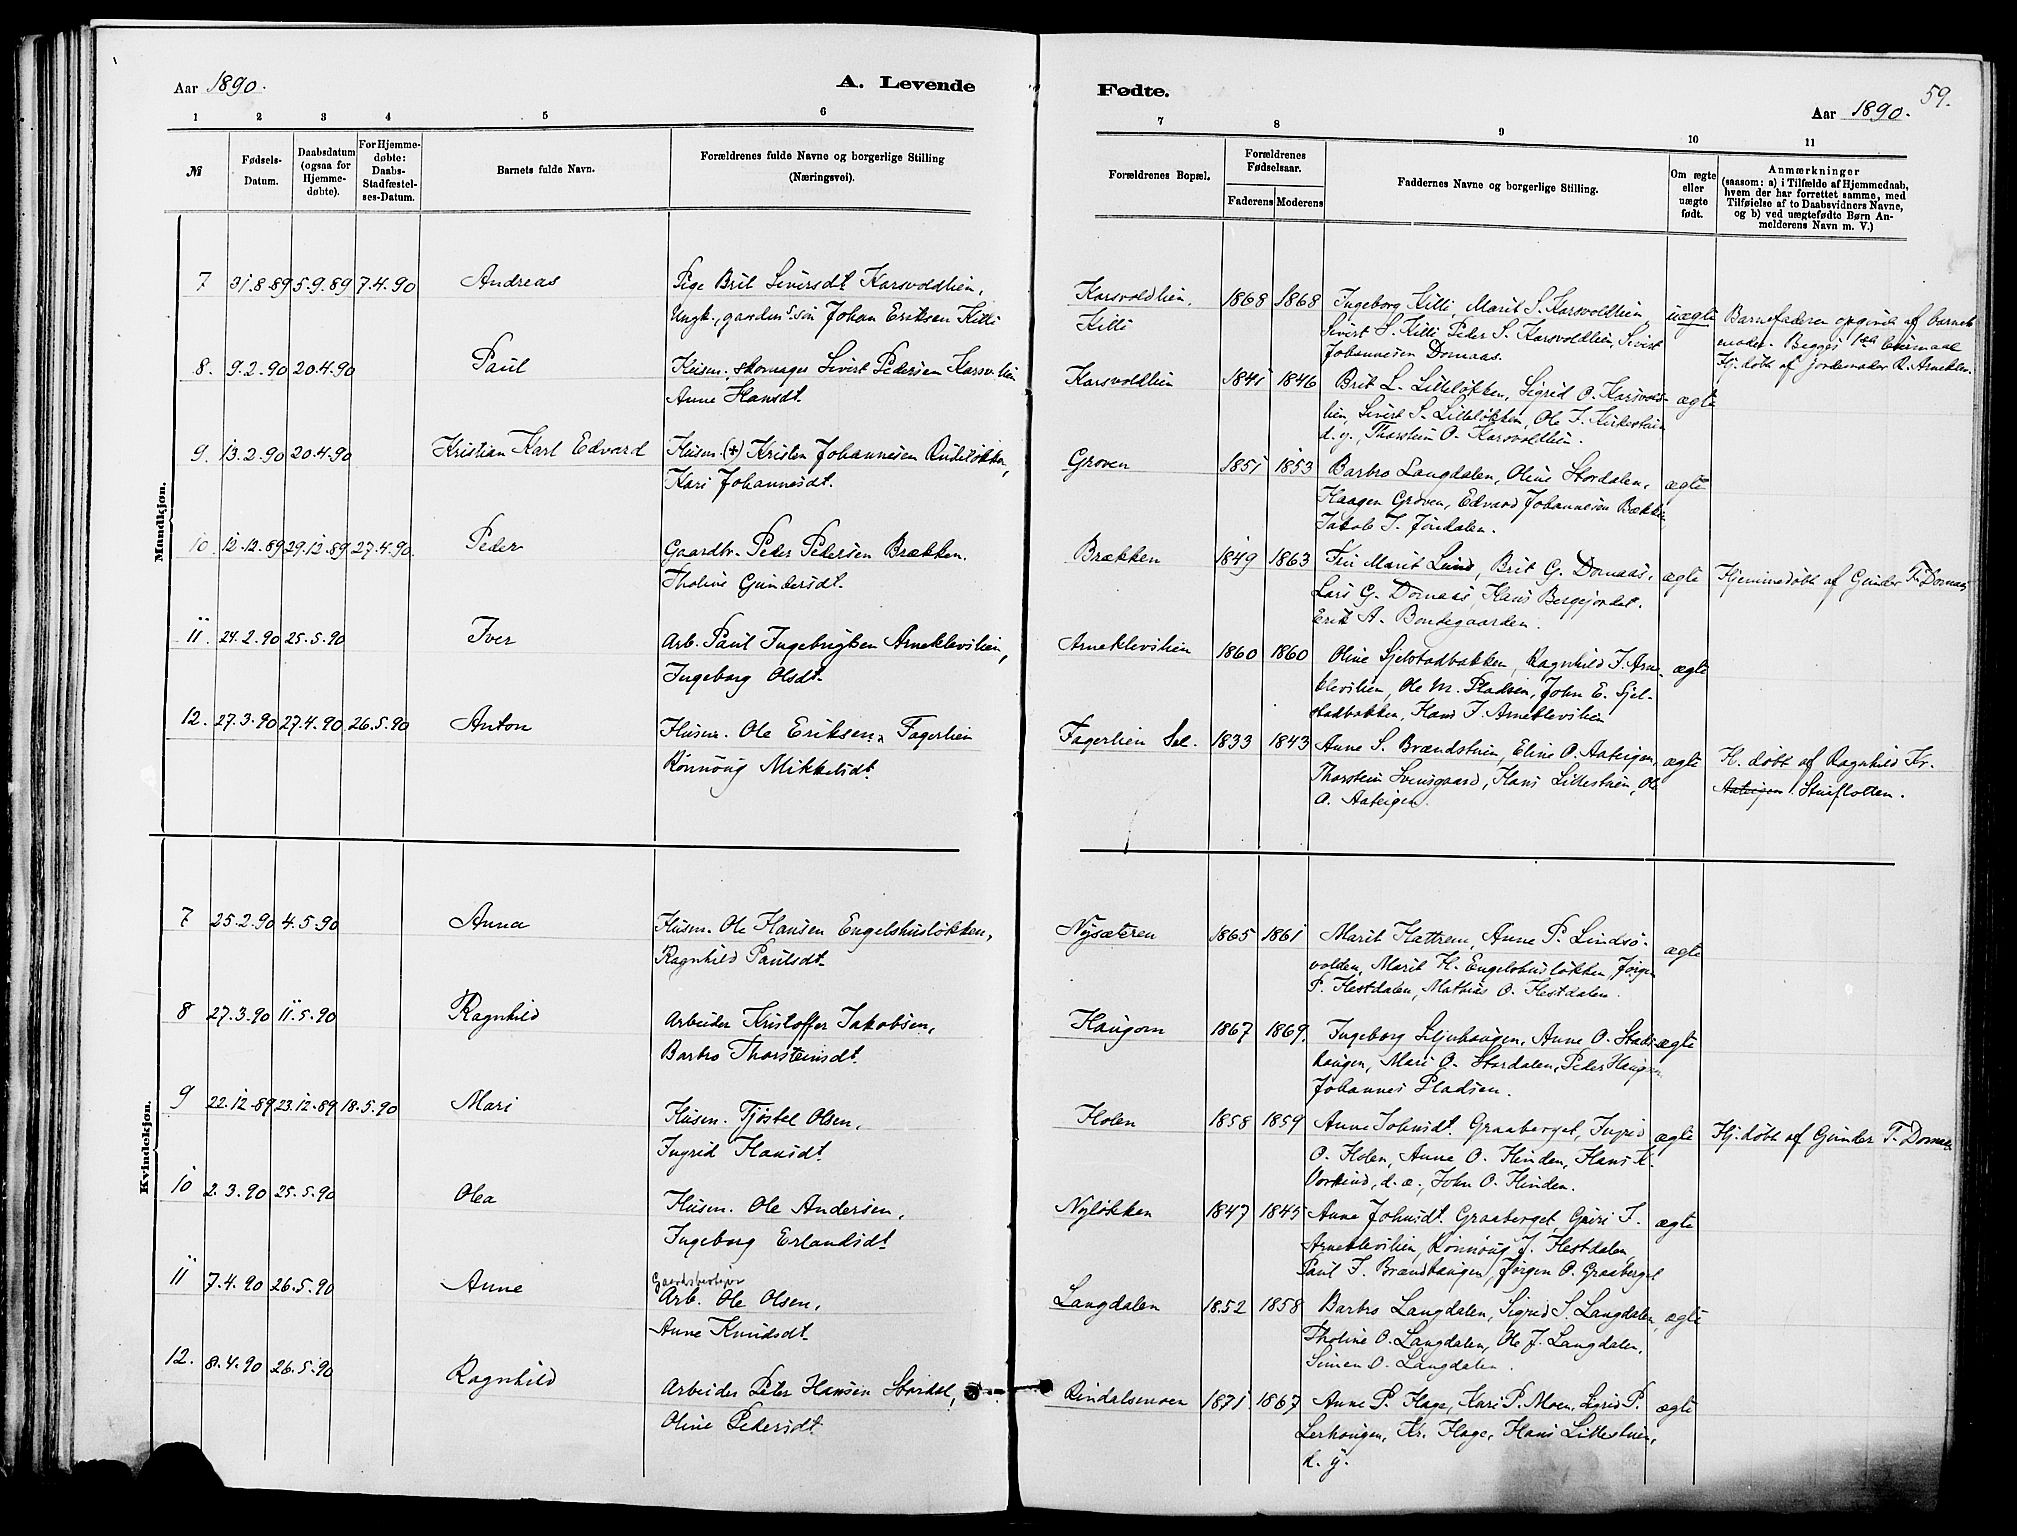 Aar 1890.
A. Levende
Fødte.
59.
Aar 1890.
1 2 3 4 5 6 7 8 9 10 11
№
Fødsels-
Datum.
Daabsdatum
(ogsaa for
Hjemme-
døbte).
For Hjemme-
døbte:
Daabs-
Stadfæstel-
ses-Datum.
Barnets fulde Navn.
Forældrenes fulde Navne og borgerlige Stilling
(Næringsvei).
Forældrenes Bopæl.
Forældrenes
Fødselsaar.
Faderens Moderens
Faddernes Navne og borgerlige Stilling.
Om ægte
eller
uægte
født.
Anmærkninger
(saasom: a) i Tilfælde af Hjemmedaab,
hvem der har forrettet samme, med
Tilføielse af to Daabsvidners Navne,
og b) ved uægtefødte Børn An-
melderens Navn m. V.)
Mandkjøn.
7 31.8.89 5.9.89 7.4.90 Andreas
Pige Brit Siversdt Karsvoldlien,
Ungk., gardms.søn Johan Eriksen Killi
Karsvoldlien.
Killi
1868 1868
Ingeborg Killi, Marit S. Karsvoldlien
Sivert S. Killi Peder S. Karsvoldlien, Sivert
Johannesen Dornaas.
uægte
Barnefaderen opgivet af barnets
moder. Begges 1ste leiermaal
Hj. døbt af jordemoder R. Arneklev.
8. 9.2.90 20.4.90 Paul
Husm., skomager Sivert Pedersen Karsv.lien
Anne Hansdt.
Karsvoldlien
1841 1846
Brit L. Lilleløkken, Sigrid O. Karsvold-
lien, Sivert S. Lilleløkken, Ole J. Kirkestuen
d.y., Thorstein O. Karsvoldlien.
ægte
9. 13.2.90 20.4.90 Kristian Karl Edvard
Husm. (+) Kristen Johannesen Rudiløkken,
Kari Johannesdt.
Groven
1851 1853
Barbro Langdalen, Oline Stordalen,
Haagen Groven, Edvard Johannesen Bækken
Jakob J. Jøndalen.
ægte
10 12.12.89 29.12.89 27.4.90. Peder
Gaardbr. Peder Pedersen Brækken.
Tholine Gundersdt.
Brækken
1849 1863
Fru Marit Lund, Brit G. Dornaas,
Lars G. Dornaas, Hans Bergejordet.
Erik A. Bondegaarden.
ægte
Hjemmedøbt af Gunder T. Dornaas
11. 24.2.90 25.5.90 Iver
Arb. Paul Ingebrigtsen Arneklevslien,
Ingeborg Olsdt.
Arneklevslien
1860 1860
Oline Sjelstadbakken, Ragnhild I. Arne-
klevslien, Ole M. Pladsen, John E. Sjel-
stadbakken, Hans I. Arneklevslien
ægte
12. 27.3.90 27.4.90 26.5.90 Anton
Husm. Ole Eriksen Fagerlien
Rønnøug Mikkelsdt.
Fagerlien Sel.
1833 1843
Anne S. Brændstuen, Eline O. Aateigen,
Thorstein Svensgaard, Hans Lillestuen, Ole
O. Aateigen.
ægte
H. døbt af Ragnhild Kr.
Aateigen Stuflotten.
Kvindekjøn.
7 25.2.90 4.5.90 Anna
Husm. Ole Hansen Engelshusløkken,
Ragnhild Paulsdt.
Nysæteren
1865 1861
Marit Hattrem, Anne P. Lindsø-
volden, Marit H. Engelshusløkken, Jørgen
P. Hestdalen, Mathias O. Hestdalen.
ægte
8 27.3.90 11.5.90 Ragnhild
Arbeider Kristoffer Jakobsen,
Barbro Thorsteinsdt.
Haugom
1867 1869.
Ingeborg Seljuhaugen, Anne O. Stads-
haugen, Mari O. Stordalen, Peder Haugen
Johannes Pladsen.
ægte
9 22.12.89 23.12.89 18.5.90 Mari
Husm. Tjøstel Olsen,
Ingrid Hansdt.
Holen
1858 1859
Anne Johnsdt. Graaberget, Ingrid
O. Holen, Anne O. Hinden, Hans K.
Vorkind, d.æ., John O. Hinden.
ægte
Hj. døbt af Gunder T. Dornaas
10 2.3.90 25.5.90 Olea
Husm. Ole Andersen,
Ingeborg Erlandsdt.
Nyløkken
1847 1845
Anne Johnsdt. Graaberget, Guri I.
Arneklevslien, Rønnøug J. Hestdalen,
Paul I. Brændhaugen, Jørgen P. Graaberget
ægte
11 7.4.90 26.5.90 Anne
Gaardsbestyrer
Arb. Ole Olsen,
Anne Knudsdt.
Langdalen
1852 1858
Barbro Langdalen, Sigrid S. Langdalen,
Tholine O. Langdalen, Ole J. Langdalen,
Simen O. Langdalen.
ægte
12. 8.4.90 26.5.90 Ragnhild
Arbeider Peter Hansen Stordal,
Oline Pedersdt.
Rindalsmoen
1871. 1867
Anne P. Hage, Kari P. Moen, Sigrid P.
Lerhougen, Kr. Hage, Hans Lillestuen,
d. y.
ægte